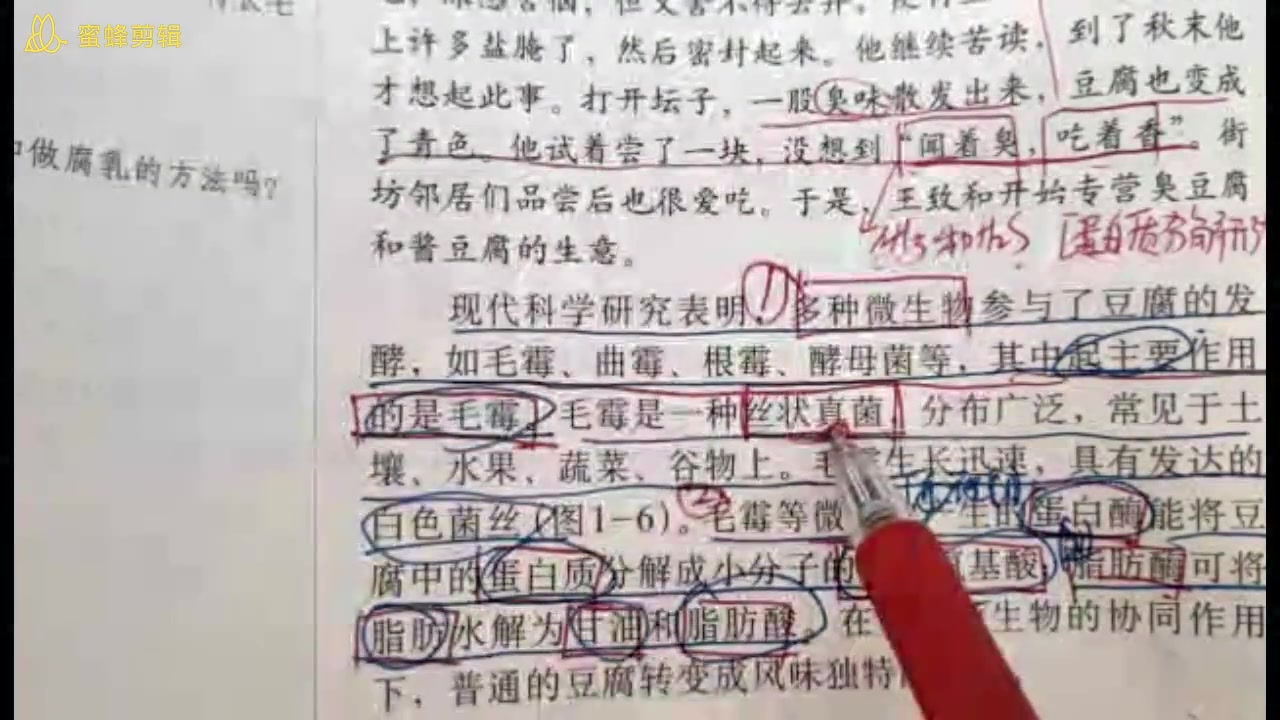 蜜蜂剪辑
做腐乳的方法吗？
上许多盐腌了，然后密封起来。他继续苦读，到了秋末他
才想起此事。打开坛子，一股臭味散发出来，豆腐也变成
了青色。他试着尝了一块，没想到“闻着臭，吃着香”。街
坊邻居们品尝后也很爱吃。于是，王致和开始专营臭豆腐
和酱豆腐的生意。
现代科学研究表明，多种微生物参与了豆腐的发
酵，如毛霉、曲霉、根霉、酵母菌等，其中起主要作用
的是毛霉。毛霉是一种丝状真菌，分布广泛，常见于土
壤、水果、蔬菜、谷物上。毛霉生长迅速，具有发达的
白色菌丝（图1-6）。毛霉等微生的蛋白酶能将豆
腐中的蛋白质分解成小分子的氨基酸；脂肪酶可将
脂肪水解为甘油和脂肪酸。在生物的协同作用
下，普通的豆腐转变成风味独特